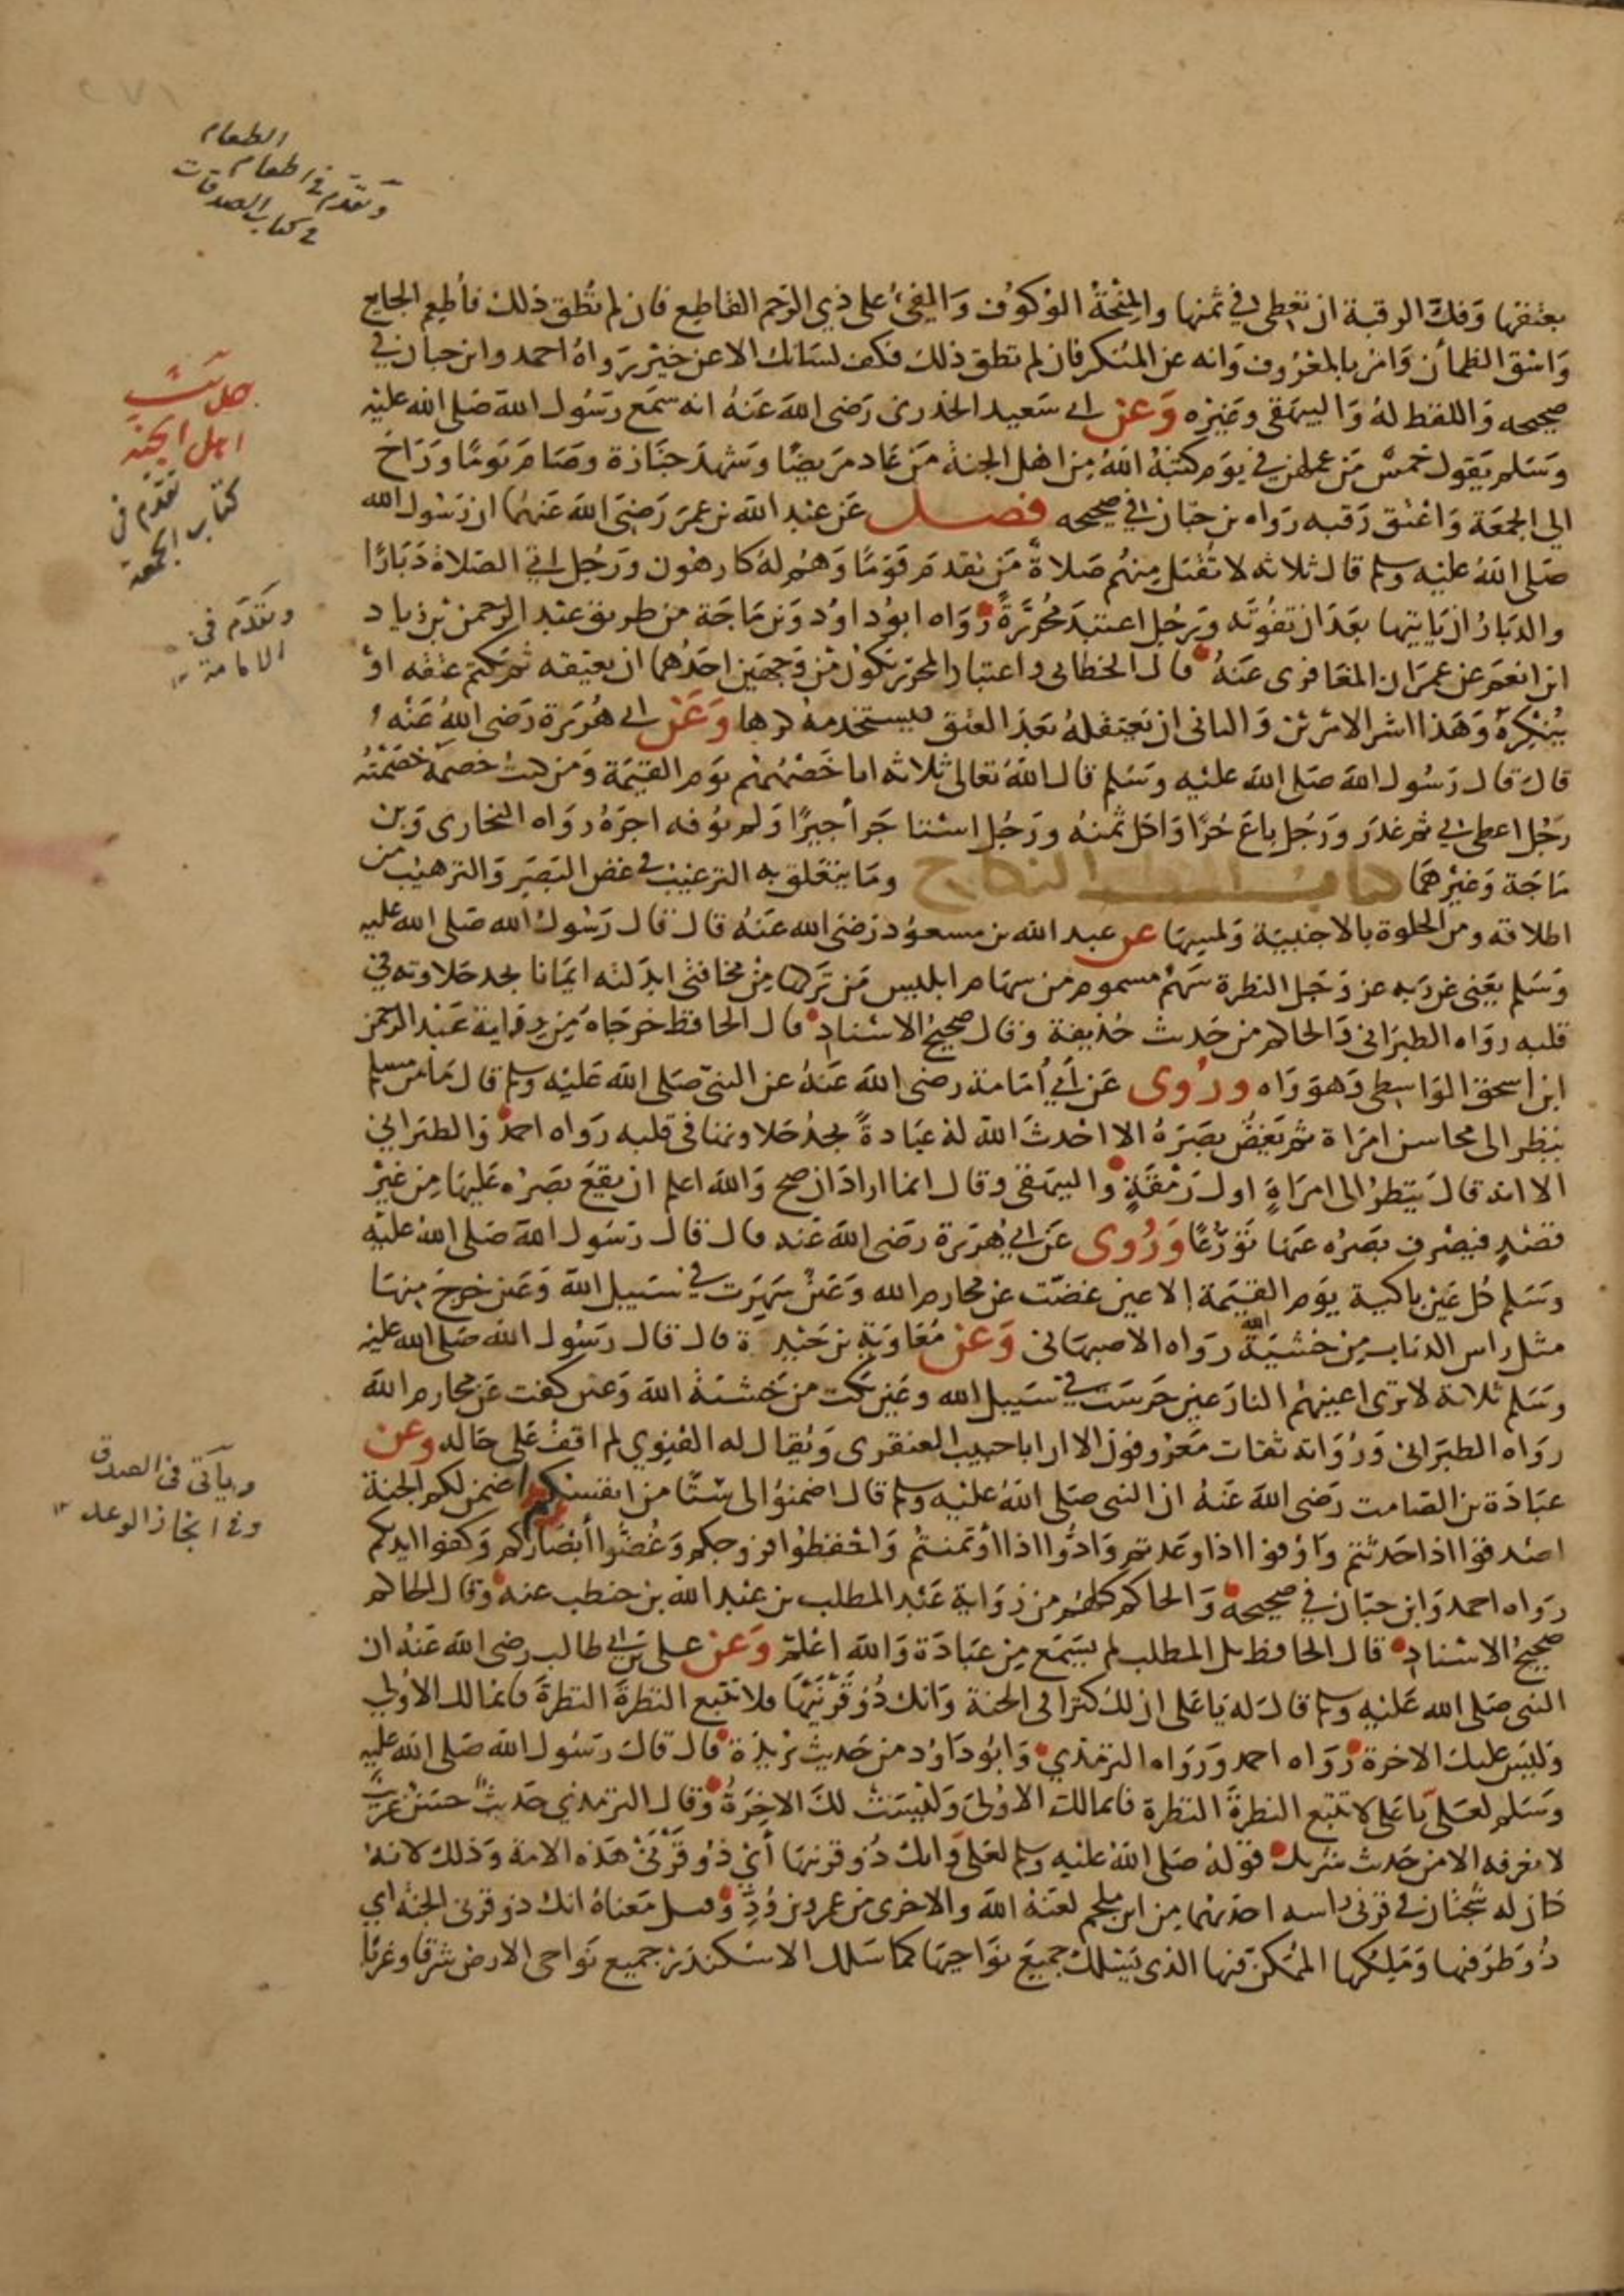 ٢٧١
الطعام
وتقدم في اطعام
في كتاب الصدقات
بعتقها وَفكّ الرقبة ان تعطى في ثمنها والمِنْحَةُ الوَكوُف وَالفيءُ على ذي الرّحم القاطع فان لم تُطق ذلك فأطعِم الجايع
وَاسْق الظمأن وَامر بالمعْرُوف وَانه عن المُنكر فان لم تطق ذلك فكف لسَانك الا عن خيْر رَواهُ احمد وابن حبان في
صحيحه وَاللفظ لهُ وَالبيهقى وغيره وَعن ابى سَعيد الخدرى رَضى اللهَ عَنهُ انه سَمَع رَسُول اللهَ صَلى الله عليْه
وسَلم يَقول خمسٌ مَن عملهن في يوَم كتبَهُ اللهُ مِن اهل الجنة مَن عَاد مَريضًا وشهدَ جَنَازة وصَام يَومًا وَرَاحَ
الى الجمعَة وَاعْتق رَقبه رَواه بن حبّان في صحيحه فصل عَن عَبْد اللهَ بن عمرَ رَضىَ اللهَ عَنهُمَا ان رَسُول الله
صَلى اللهُ عليْه وسلم قال ثلاثه لا تقُبَل مِنهُم صَلاة مَن تقدمَ قوَمًا وَهُم لهُ كارهُون ورَجُل اتى الصَلاة دَبَارًا
والدَبَارُ ان يَاتيها بعَدَ ان تفُوتَه وَرجُل اعتبَدَ مُحرَّرَةً رَوَاه ابوُ داوُد وَبن مَاجَة من طريق عَبْد الرحمن بن زياد
ابن انعم عن عمرَان المعَافرى عَنهُ قال الخطابى واعتبار المحرّر يَكوُن مْن وَجهَين احَدُهما ان يعتِقه ثمَ يكتم عتقه اوْ
يُنكِرهُ وَهَذا اشر الامْرين وَالثانى ان يَعتقلهُ بعَد العتق فيستخدمهُ كرها وَعَنْ ابى هُرَيرَة رَضى اللهُ عَنْه
قالَ قال رَسُول اللهَ صَلى اللهَ عليْه وسَلم قال اللهُ تعَالى ثلاثه انا خَصْمُهُم يوَم القيمَة ومَن كنت خصمَهُ خَصَمْتُه
رَجُل اعطى بي ثم غدَر وَرَجُل باعَ حُرًا وَاكل ثمنهُ ورَجُل اسْتاجَر أجيرًا وَلم يوُفه اجرَهُ رواه البخارى وَبن
مَاجَة وَغيْرهمَا كتاب النكاح ومَا يتعَلق به الترغيْب في غض البَصَر وَالترهيْب من
اطلاقه ومن الخلوة بالاجنبيَة وَلمسِهَا عن عبد الله بن مسعوُد رَضىَ الله عَنهُ قال قال رَسُول الله صَلى الله عليه
وَسَلم يعَنى عن رَبه عز وَجَل النظرة سَهمٌ مسموم من سهَام ابليس مَن تَركها مِنْ مخافتى ابدَلته ايمَانا يجد حَلاوته في
قلبه رواه الطبرَانى وَالحاكم من حَديث حُذيفة وقال صحيحُ الاسْنادِ قال الحافظ خرجَاهُ مِن روَاية عَبْد الرحمن
ابن اسحق الوَاسِطى وَهوَ وَاه ورُوى عَن أبي أُمَامة رضى اللهَ عَنهُ عن النبىّ صَلى اللهَ عَليْه وسلم قال مَا من مسلم
ينظر الى محاسن امرَاة ثم يَغضُ بصَرَهُ الا احْدثَ اللهَ لهُ عبَادةً يجدُ حَلاوتها في قلبه رَواه احمدُ وَالطبَرانى
الا انه قالَ يَنظرُ الى امرَاةٍ اول رَمْقَةٍ والبيهَقى وقال انما ارادَ ان صح وَاللهَ اعلم ان يقَعَ بَصَرُه عَليَها مِن غيْر
قصْدٍ فيصْرف بصَرُه عنهَا تَوَرُّعًا وَرُوى عَن ابى هُرَيرة رضَى اللهَ عَنه قال قال رَسُول اللهَ صَلى اللهُ عليْه
وسَلم كل عَيْن باكية يَوَم القيَمة الا عين غضت عن محارم الله وَعَيْنٌ سَهِرَت في سَبيل اللهَ وَعَين خرجَ مِنهَا
مثل راس الذبابِ مِن خشيَة الله رَواه الاصبهَانى وَعن مُعَاويَة بن حَيْدة قال قال رَسُول الله صَلى الله عليه
وسَلم ثلاثة لا ترَى اعينهُم النارَ عين حَرسَت في سَبيل الله وعَين بَكت من خَشيَة اللهَ وَعَين كفت عَن محارم اللهَ
رواه الطبرَانى وَرُوَاته ثقات مَعرُوفون الا ان ابا حبيب العنقرى وَيُقال له القنوِي لم اقف عَلى حَاله وعن
عبَادَة بن الصَامت رَضى اللهَ عَنهُ ان النبى صَلى اللهُ عليْه وسلم قال اضمَنوُا لى سْتًا من انفسكم اضمن لكم الجنة
اصْدقوُا اذا حَدثتم وَاوْفوا اذا وعَدتم وَادُّوا اذا أوتمنتمْ وَاحْفظوُا فروجكم وَغُضُّوا أبْصَارَكم وَكفوا ايديكم
رَواه احمد وَابن حبّان في صحيحهُ وَالحاكم كلهُم من رِوَاية عَبْد المطلب بن عبْد الله بن حنطب عنهُ وَقال الحاكم
صحيحُ الاسْنادِ قال الحافظ بل المطلب لم يسَمَع مِن عبَادَة وَالله اعْلمْ وَعن على بن ابى طالب رضى الله عَنهُ ان
النبى صَلى الله عَليْه وسلم قالَ له يَا على ان لكَ كنزا في الجنة وَانك ذُو قَرْنَيْهَا فلا تتبع النظرةَ النظرةَ فانما لك الأوُلى
وَليَس عليك الاخرة رَوَاه احمد وَرَوَاه الترمذي وَابُو دَاوُد من حَديث بُريْدَة قال قالَ رَسُول اللهَ صَلى الله عليْه
وسَلم لعَلىّ يَا عَلى لا تتْبَع النظرةَ النظرة فانما لكَ الاوُلىَ وَليْسَتْ لكَ الاخِرَةُ وَقال الترمذي حَديثٌ حسَنٌ غريبٌ
لا نعرفه الا من حَديث شريك قوْلهُ صَلى اللهَ عليْه وسلم لعَلىّ وَانك ذُو قرْنَيهَا أىْ ذُو قَرْنَيْ هَذه الامة وَذلك لانهُ
كان له شجتان في قرْنى راسه احدَيهما مِن ابن ملجم لعَنهُ اللهَ والاخرى من عمرو بن وُدٍّ وَقيل مَعناهُ انك ذو قرنى الجنة اي
ذُو طرفيها وَمَلِكها المُمَكن فيها الذى يَسْلك جميعَ نوَاحيهَا كما سَلك الاسكندر جميع نَواحى الارض شرقا وغربًا
حديث
اهل الجنة
تقدم في
كتاب الجمعة
وتقدم في
الامامة ١٢
ويأتى في الصدق
وفي انجاز الوعد ١٢